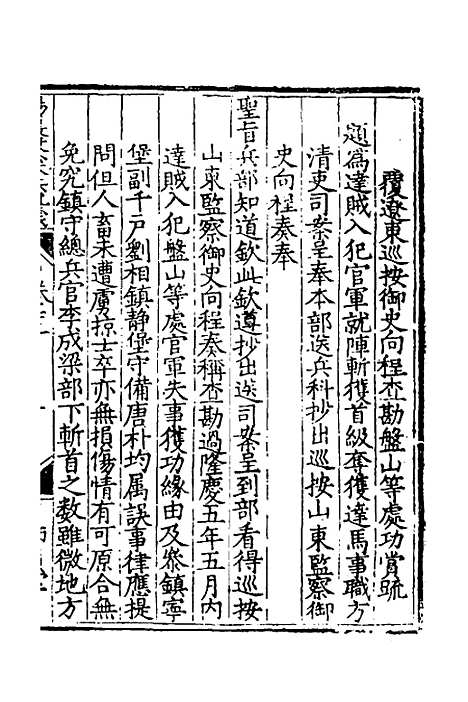 覆遼東巡按御史向程查勘盤山等處功賞疏
題爲達賊入犯官軍就陣斬獲首級奪獲達馬事職方
清吏司案呈奉本部送兵科抄出巡按山東監察御
史向程奏奉
聖旨兵部知道欽此欽遵抄出送司案呈到部看得巡按
山東監察御史向程奏稱查勘過隆慶五年五月內
達賊入犯盤山等處官軍失事獲功緣由及參鎮寧
堡副千戶劉相鎮靜堡守備唐朴均属誤事律應提
問但人畜未遭虜掠士卒亦無損傷情有可原合無
免究鎮守總兵官李成梁部下斬首之数雖微地方